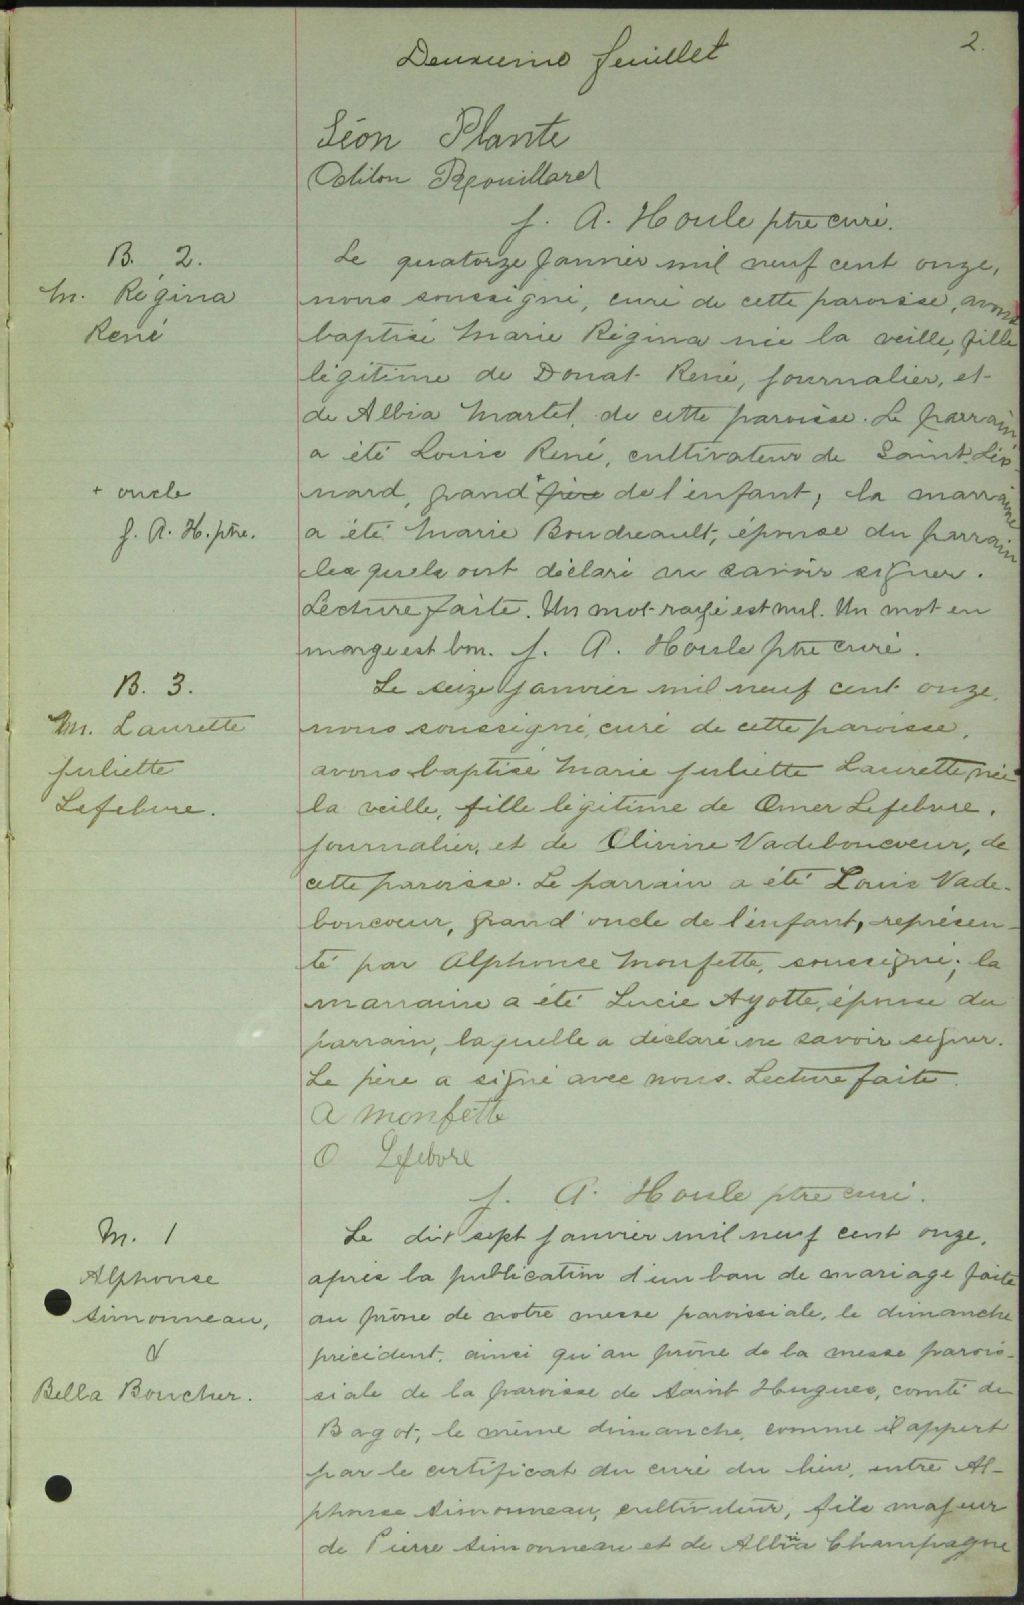 2.
Deuxième feuillet
Léon Plante
Odilon Rouillard
J. A. Houle ptre curé.
B. 2.
M. Régina
René
Le quatorze Janvier mil neuf cent onze,
nous soussigné, curé de cette paroisse, avons
baptisé Marie Régina née la veille, fille
légitime de Donat René, journalier, et
de Albia Martel, de cette paroisse. Le parrain
a été Louis René, cultivateur de Saint Léo-
nard, grand + père de l'enfant; la marraine
a été Marie Boudreault, épouse du parrain
lesquels ont déclaré ne savoir signer.
Lecture faite. Un mot rayé est nul. Un mot en
marge est bon. J. A. Houle ptre curé.
+ oncle
J. A. H. ptre.
B. 3.
M. Laurette
Juliette
Lefebvre.
Le seize janvier mil neuf cent onze,
nous soussigné, curé de cette paroisse,
avons baptisé Marie Juliette Laurette, née
la veille, fille légitime de Omer Lefebvre,
journalier, et de Olivine Vadeboncoeur, de
cette paroisse. Le parrain a été Louis Vade-
boncoeur, grand'oncle de l'enfant, représen-
té par Alphonse Monfette, soussigné; la
marraine a été Lucie Ayotte, épouse du
parrain, laquelle a déclaré ne savoir signer.
Le père a signé avec nous. Lecture faite.
A Monfette
O Lefebvre
J. A. Houle ptre curé.
M. 1
Alphonse
Simonneau,
&
Bella Boucher.
Le dix sept janvier mil neuf cent onze,
après la publication d'un ban de mariage faite
au prône de notre messe paroissiale, le dimanche
précédent, ainsi qu'au prône de la messe parois-
siale de la paroisse de Saint Hugues, comté de
Bagot, le même dimanche, comme il appert
par le certificat du curé du lieu, entre Al-
phonse Simonneau, cultivateur, fils majeur
de Pierre Simonneau et de Albina Champagne